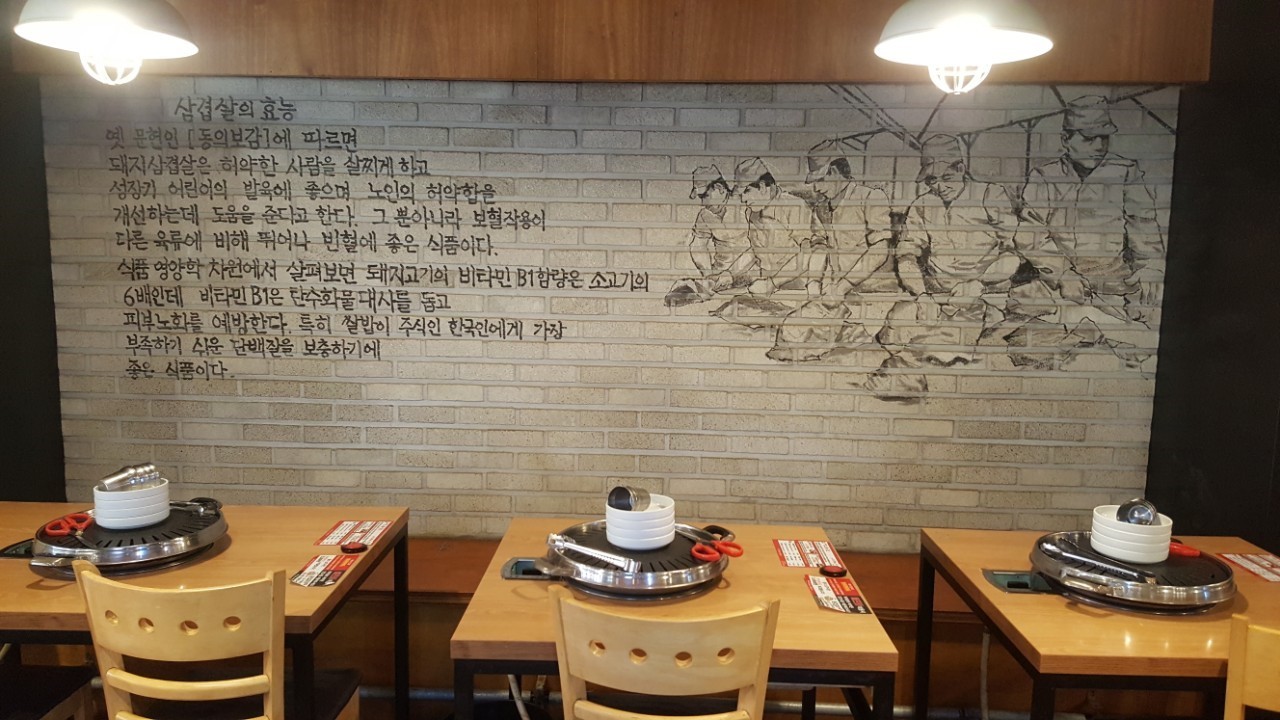 삼겹살의 효능
옛 문헌인 [동의보감]에 따르면
돼지삼겹살은 허약한 사람을 살찌게 하고
성장기 어린이의 발육에 좋으며 노인의 허약함을
개선하는데 도움을 준다고 한다. 그 뿐아니라 보혈작용이
다른 육류에 비해 뛰어나 빈혈에 좋은 식품이다.
식품 영양학 차원에서 살펴보면 돼지고기의 비타민 B1함량은 소고기의
6배인데 비타민 B1은 탄수화물 대사를 돕고
피부노화를 예방한다. 특히 쌀밥이 주식인 한국인에게 가장
부족하기 쉬운 단백질을 보충하기에
좋은 식품이다.